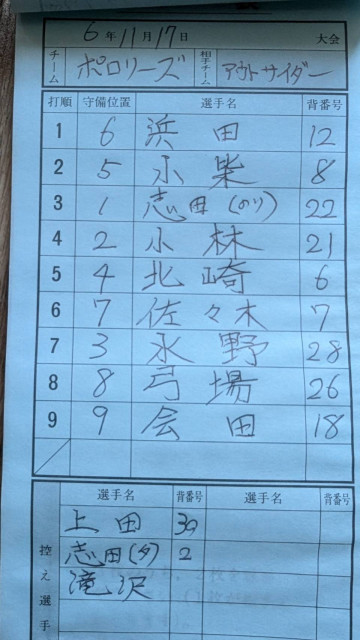 6年11月17日 大会
チーム ポロリーズ 相手チーム アウトサイダー
打順 守備位置 選手名 背番号
1 6 浜田 12
2 5 小柴 8
3 1 志田(のり) 22
4 2 小林 21
5 4 北崎 6
6 7 佐々木 7
7 3 水野 28
8 8 弓場 26
9 9 会田 18
控え選手
選手名 背番号 選手名 背番号
上田 30
志田(タ) 2
滝沢